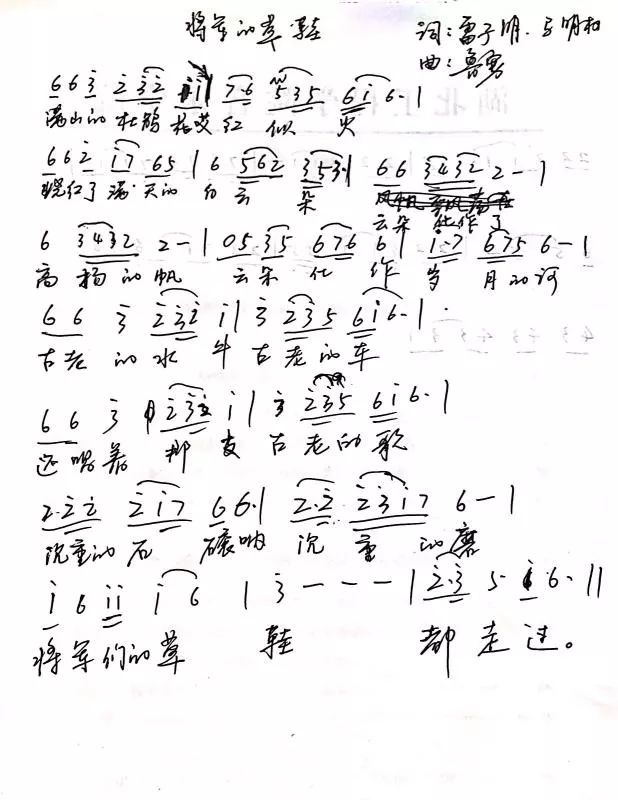 将军的草鞋 词：雷子明．马明和
曲：鲁勇
6 6 3 2 3 2 i i 7·6 5 3 5 6 i 6·|
满山的杜鹃花哎红似火
6 6 2 i 7 6 5 | 6 5 6 2 3 5 3·| 6 6 3 4 3 2 2 - |
映红了满天的白云朵 云朵化作了
6 3 4 3 2 2 - | 0 5 3 5 6 7 6 6 | i·7 6 7 5 6 - |
高扬的帆 云朵化作岁月的河
6 6 3 2 3 2 i | 3 2 3 5 6 i 6·|
古老的水牛古老的车
6 6 3 2 3 2 i | 3 2 3 5 6 i 6·|
还唱着那支古老的歌
2·2 2 2 i 7 6 6·| 2·2 2 3 i 7 6 - |
沉重的石磙呐沉重的磨
i 6 i i i 6 | 3 - - - | 2·3 5 i 6·||
将军们的草鞋都走过。